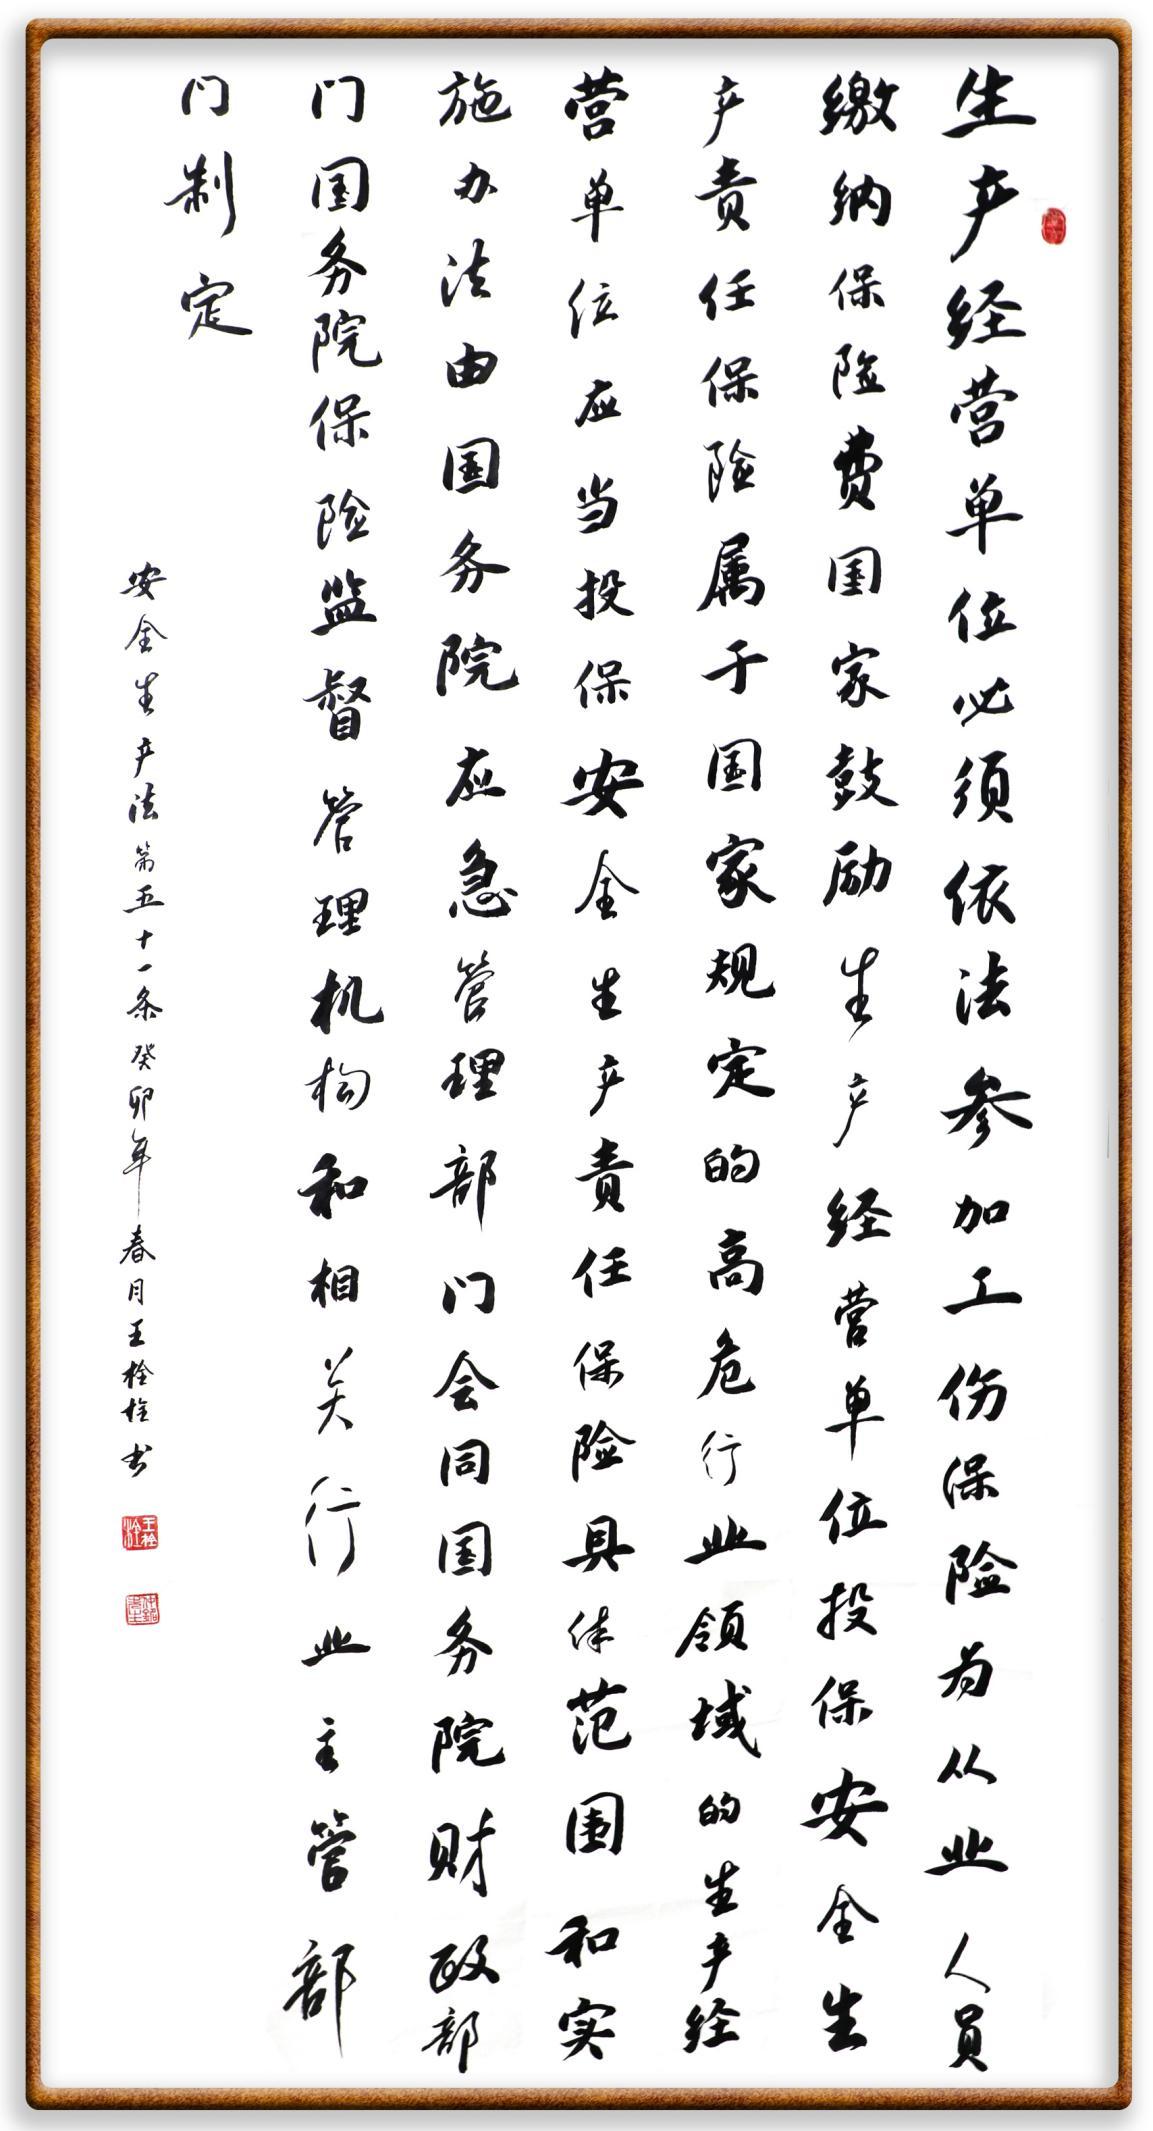 生产经营单位必须依法参加工伤保险为从业人员
缴纳保险费国家鼓励生产经营单位投保安全生
产责任保险属于国家规定的高危行业领域的生产经
营单位应当投保安全生产责任保险具体范围和实
施办法由国务院应急管理部门会同国务院财政部
门国务院保险监督管理机构和相关行业主管部
门制定
安全生产法第五十一条癸卯年春月王栓栓书
王栓栓